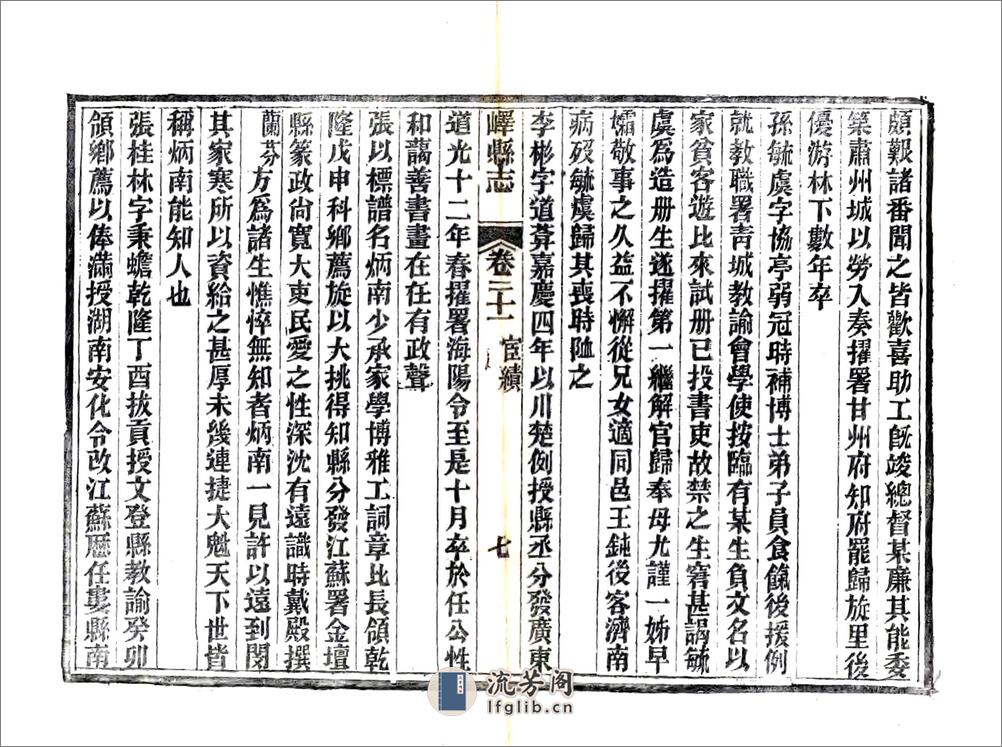 頗艱諸番聞之皆歡喜助工既竣總督某廉其能委
築肅州城以勞入奏擢署甘州府知府罷歸旋里後
優游林下數年卒
孫毓虞字協亭弱冠時補博士弟子員食餼後援例
就教職署青城教諭會學使按臨有某生負文名以
家貧客遊比來試册已投書吏故禁之生窘甚謁毓
虞爲造册生遂擢第一繼解官歸奉母尤謹一姊早
孀敬事之久益不懈從兄女適同邑王鈍後客濟南
病歿毓虞歸其喪時䘏之
李彬字道葊嘉慶四年以川楚例授縣丞分發廣東
嶧縣志
卷二十一 宦績
七
道光十二年春擢署海陽令至是十月卒於任公性
和藹善書畫在在任有政聲
張以標譜名炳南少承家學博雅工詞章比長領乾
隆戊申科鄉薦旋以大挑得知縣分發江蘇署金壇
縣篆政尙寬大吏民愛之性深沈有遠識時戴殿撰
蘭芬方爲諸生憔悴無知者炳南一見許以遠到閔
其家寒所以資給之甚厚未幾連捷大魁天下世皆
稱炳南能知人也
張桂林字秉蟾乾隆丁酉拔貢授文登縣教諭癸卯
領鄉薦以俸滿授湖南安化令改江蘇歷任婁縣南
流芳阁
lfglib.cn